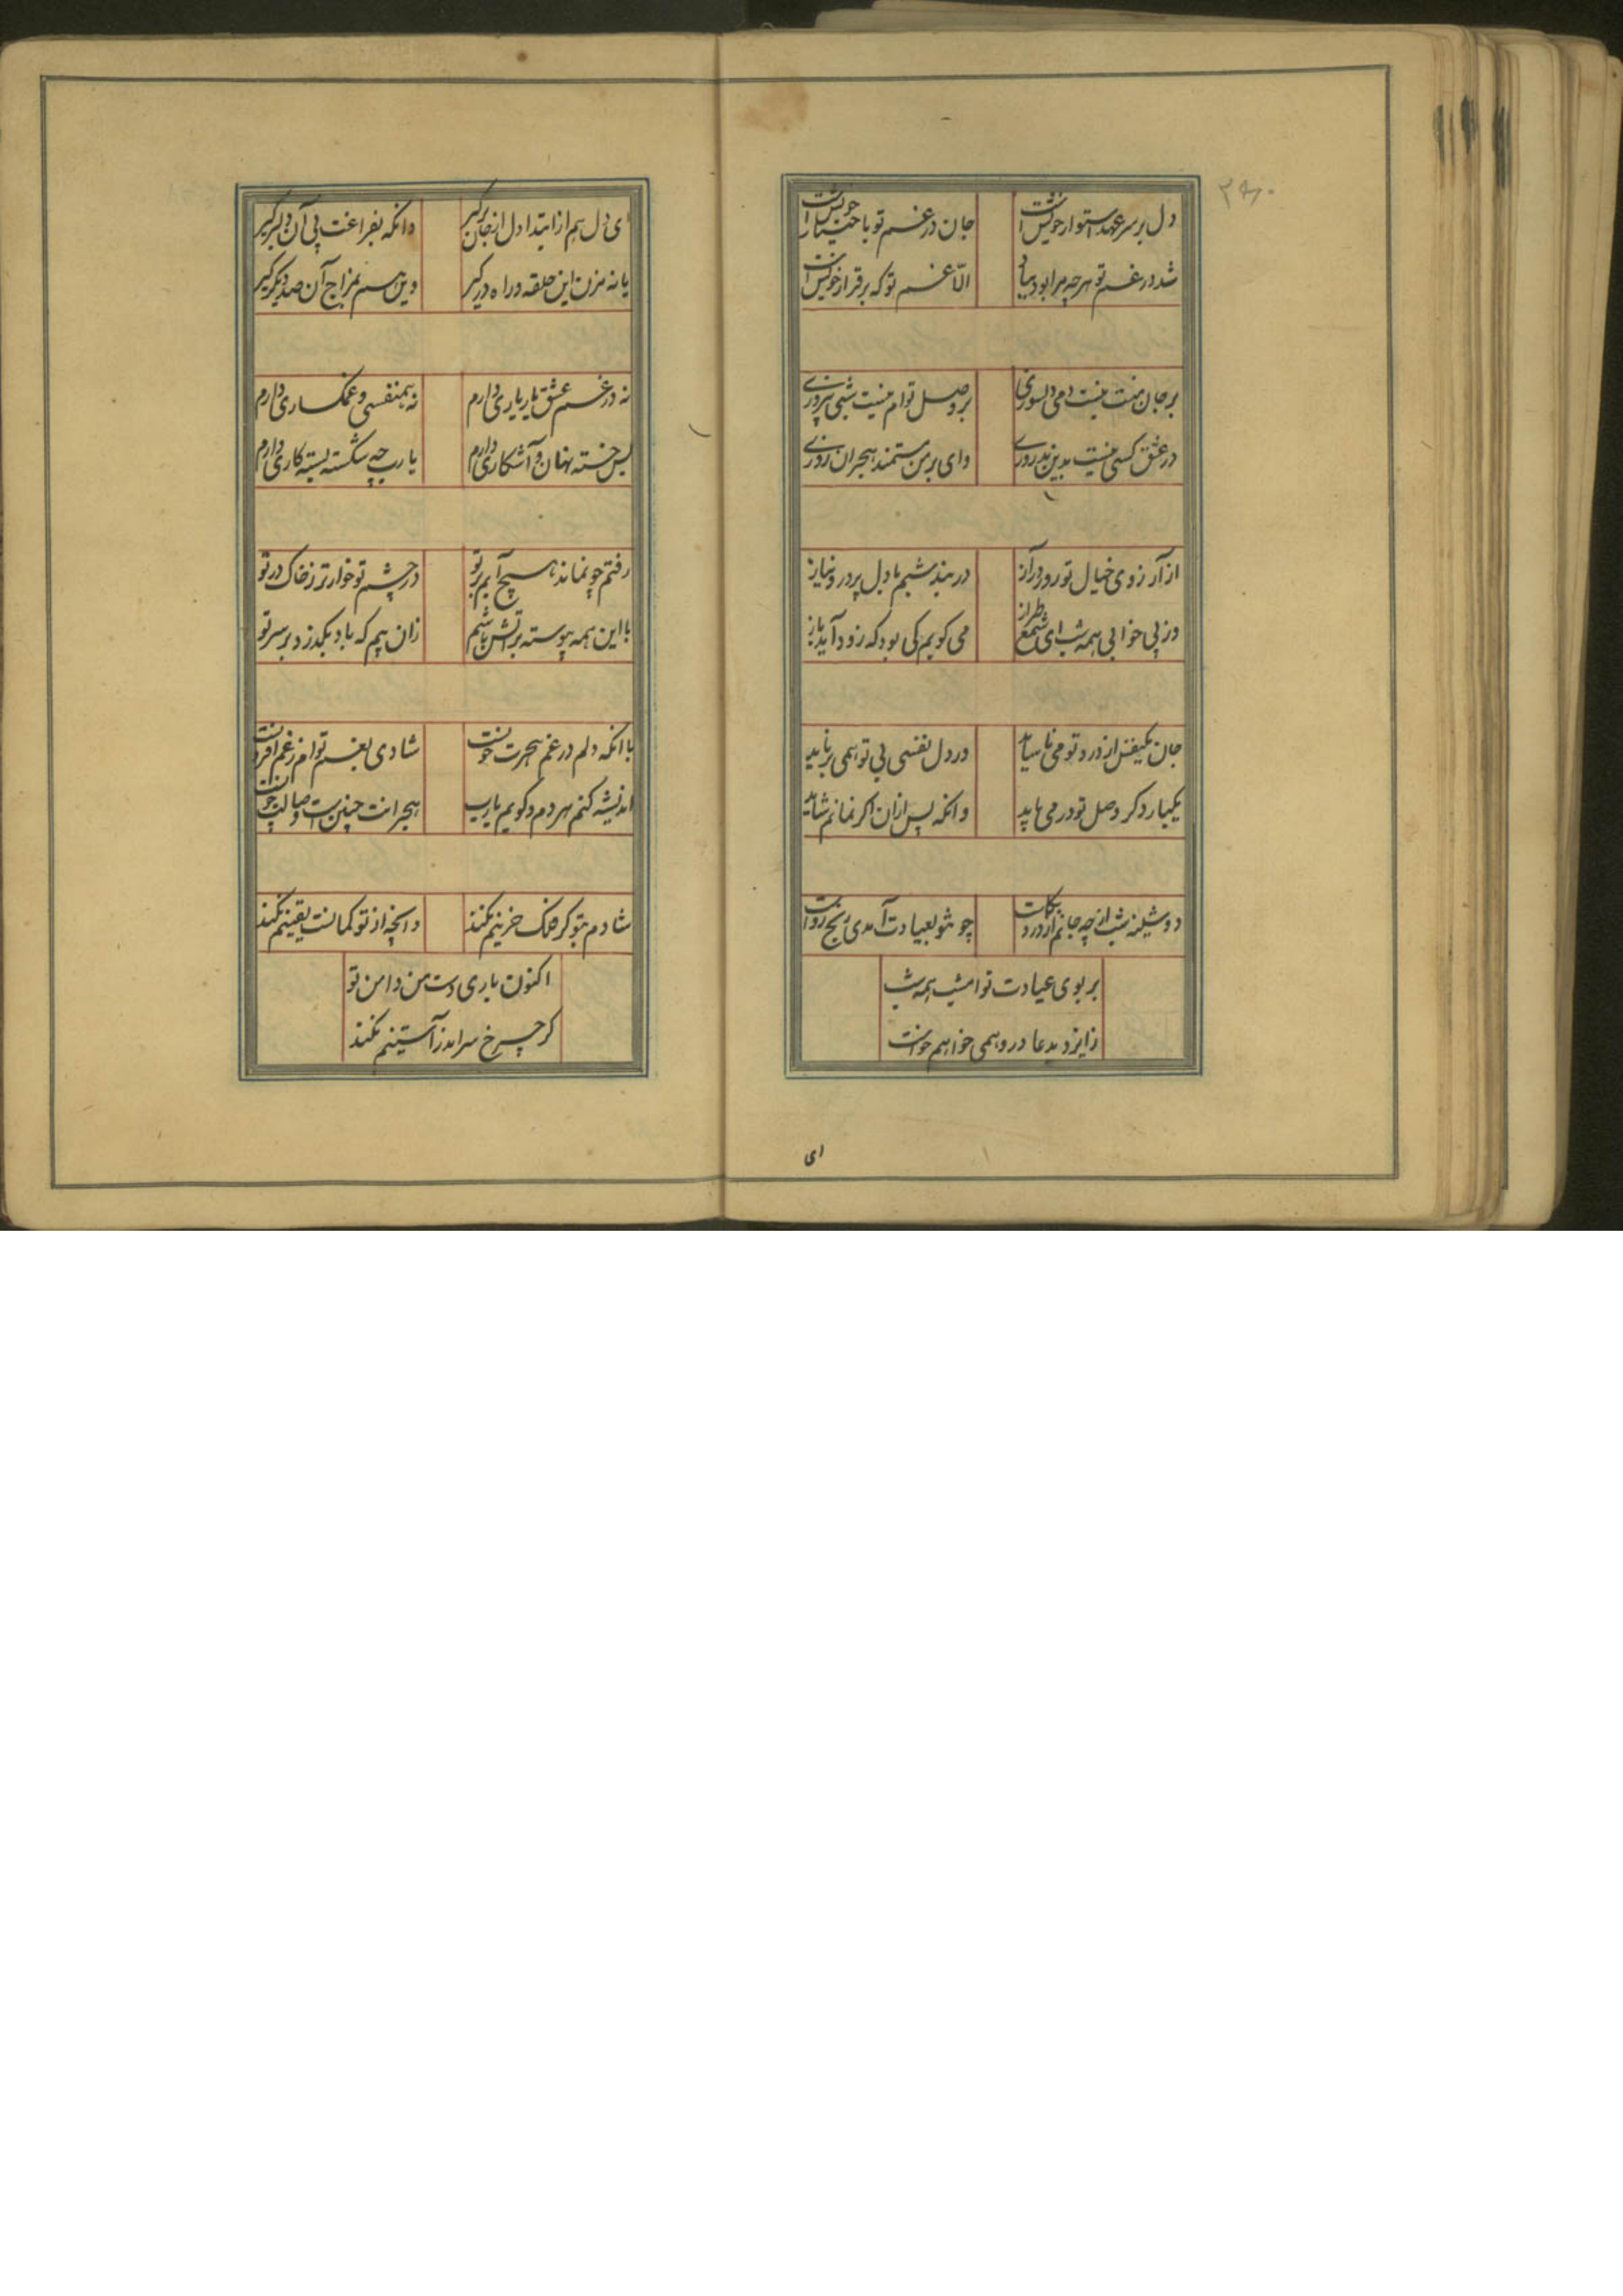 ۲۹۰
دل بر سر عهد استوار خویشست جان در غم تو با ختیار خویشست
شد در غم تو هرچه مرا بود بباد الّا غم تو که برقرار خویشست
بر جان منت نیست دمی دلسوزی بر وصل توام نیست شبی پیروزی
در عشق کسی نیست بدین بدروزی وای بر من مستمند هجران روزی
از آرزوی خیال تو روز دراز در بند شبم با دل پر درد و نیاز
وز بی خوابی همه شب ای شمع طراز می کویم کی بود که روز آید باز
جان یکنفس از درد تو می ناساید در دل نفسی بی تو همی برناید
یکبار دکر وصل تو درمی باید وانکه پس ازان اکر نمانم شاید
دوشینه شب ارچه جانم از درد بکاست چو تو بعیادت آمدی رنج رواست
بر بوی عیادت تو امشب همه شب
ز ایزد بدعا درد همی خواهم خواست
ای
ای دل هم از ابتدا دل از جان برکیر وانکه بفراغت پی آن دلبر کیر
یا نه مزن این حلقه و راه در کیر وین هم بمزاج آن صد دیکر کیر
نه در غم عشق یار یاری دارم نه همنفسی و غمکساری دارم
بس خسته نهان و آشکاری دارم یا رب چه شکسته بسته کاری دارم
رفتم چو نماند هیچ آبم بر تو در چشم تو خوارتر ز خاک در تو
با این همه پیوسته بر آتش باشم زان بیم که باد بکذرد بر سر تو
با انکه دلم در غم هجرت خونست شادی بغم توام ز غم افزونست
اندیشه کنم هر دم و کویم یارب هجرانت چنین است وصالت چونست
شادم بتو کر فلک حزینم نکند وانچه از تو کمانست یقینم نکند
اکنون باری دست من و دامن تو
کر چرخ سر اندر آستینم نکند